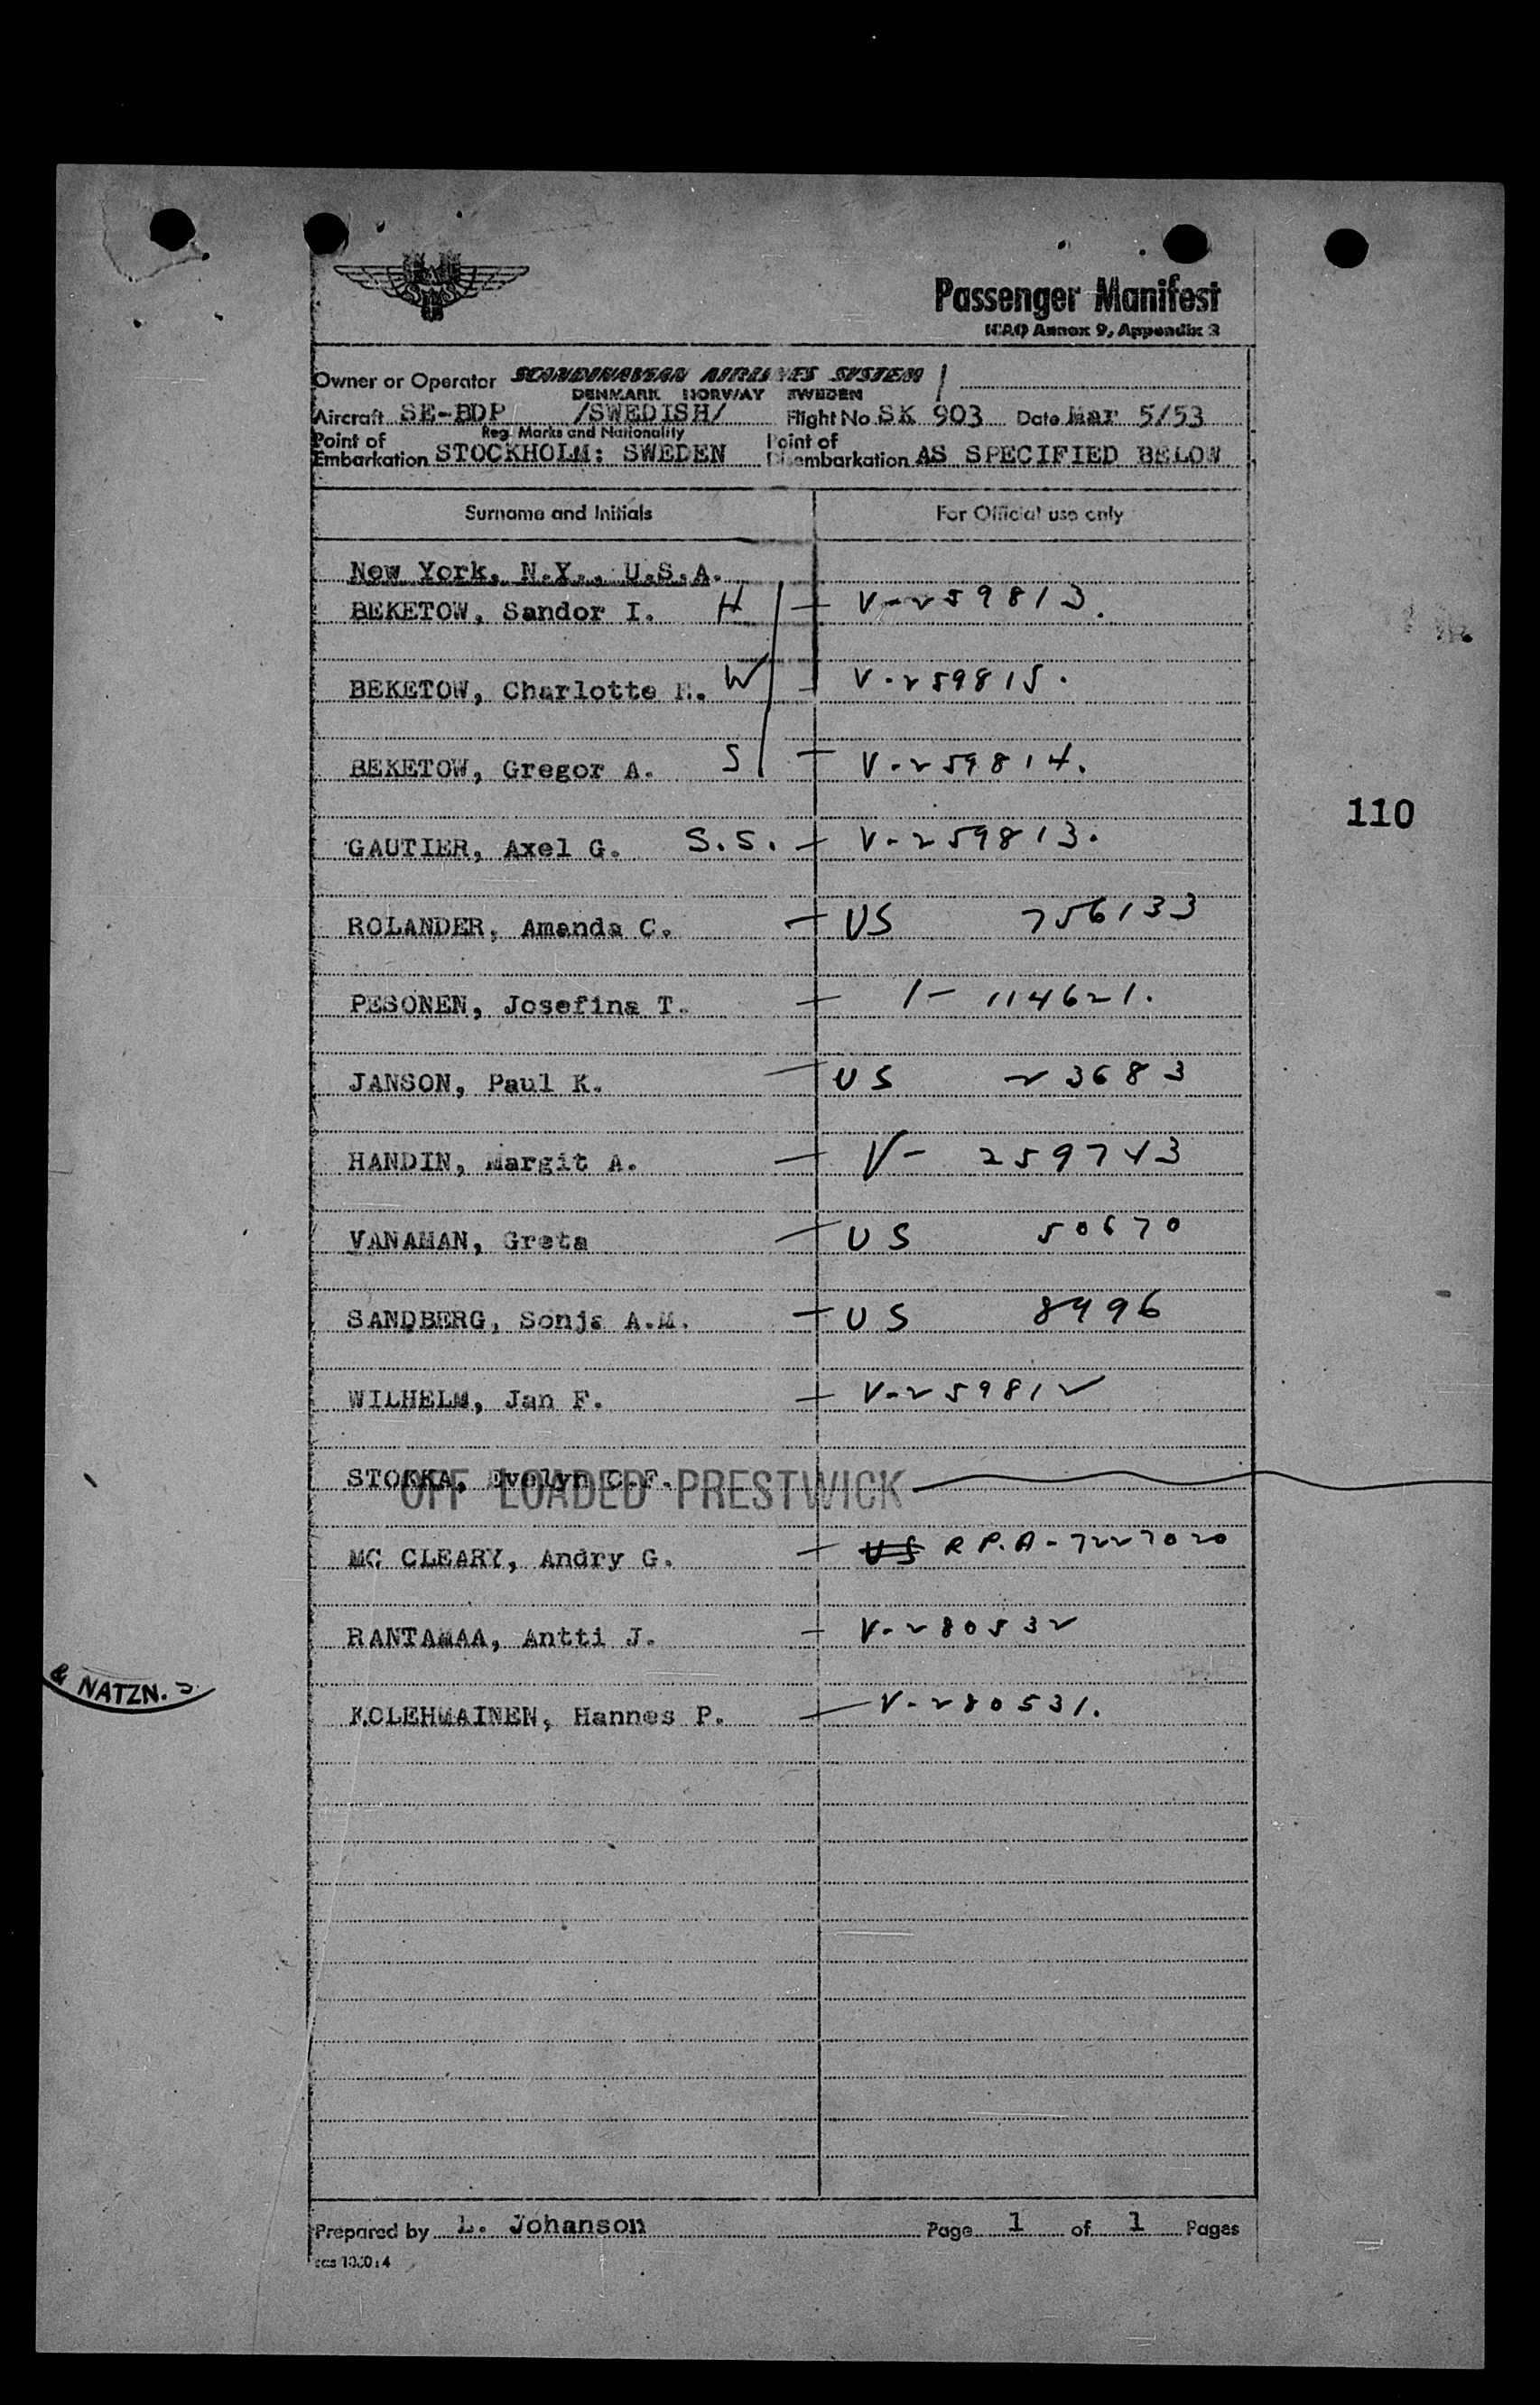 Passenger Manifest
ICAO Annex 9, Appendix 3
Owner or Operator SCANDINAVIAN AIRLINES SYSTEM
DENMARK NORWAY SWEDEN
Aircraft SE-BDP /SWEDISH/ Flight No SK 903 Date Mar 5/53
Reg. Marks and Nationality
Point of Embarkation STOCKHOLM: SWEDEN Point of Disembarkation AS SPECIFIED BELOW
Surname and Initials For Official use only
New York, N.Y., U.S.A.
BEKETOW, Sandor I. H V-259813.
BEKETOW, Charlotte E. W V-259815.
BEKETOW, Gregor A. S V-259814.
110
GAUTIER, Axel G. S.S. V-259813.
ROLANDER, Amanda C. US 756133
PESONEN, Josefina T. 1- 114621.
JANSON, Paul K. US 23683
HANDIN, Margit A. V- 259743
VANAMAN, Greta US 50670
SANDBERG, Sonja A.M. US 8996
WILHELM, Jan F. V-259812
STOKKA, Evelyn C.F.
OFF LOADED PRESTWICK
MC CLEARY, Andry G. US R P.A-7227020
RANTAMAA, Antti J. V-280532
& NATZN.
KOLEHMAINEN, Hannes P. V-280531.
Prepared by L. Johanson Page 1 of 1 Pages